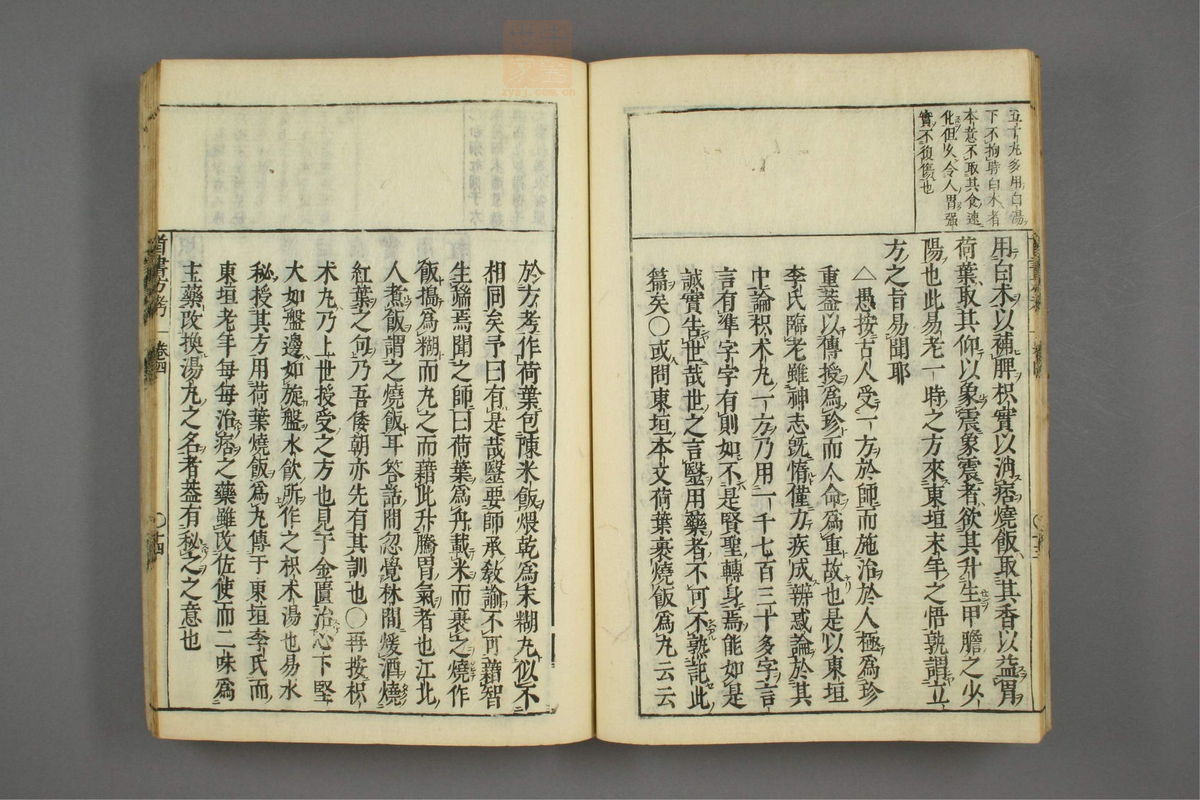 五十丸多用白湯
下不拘時白朮者
本意不取其食速
化但久令人胃强
實不復傷也
用白朮以補脾枳實以消痞燒飯取其香以益胃
荷葉取其仰以象震象震者欲其升生甲膽之少
陽也此易老一時之方來東垣末年之悟孰謂立
方之旨易聞耶
△愚按古人受一方於師而施治於人極爲珍
重蓋以傳授爲珍而人命爲重故也是以東垣
李氏臨老雖神志既惰僅力疾成辨惑論於其
中論枳朮丸一方乃用一千七百三十多字言
言有準字字有則如不是賢聖轉身焉能如是
誠實告世哉世之言醫用藥者不可不熟記此
篇矣〇或問東垣本文荷葉裹燒飯爲丸云云
於方考作荷葉包陳米飯煨乾爲末糊丸似不
相同矣予曰有是哉醫要師承敎諭不可藉智
生端焉聞之師曰荷葉爲丹載米而裹之燒作
飯搗爲糊而丸之而藉此升騰胃氣者也江北
人煮飯謂之燒飯耳答話間忽覺林間煖酒燒
紅葉之句乃吾倭朝亦先有其訓也〇再按枳
朮丸乃上世授受之方也見于金匱治心下堅
大如盤邊如旋盤水飲所作之枳朮湯也易水
秘授其方用荷葉燒飯爲丸傳于東垣李氏而
東垣老年每每治痞之藥雖改佐使而二味爲
主藥改換湯丸之名者蓋有秘之之意也
首書方考
卷四
〇廿四
zysj.com.cn